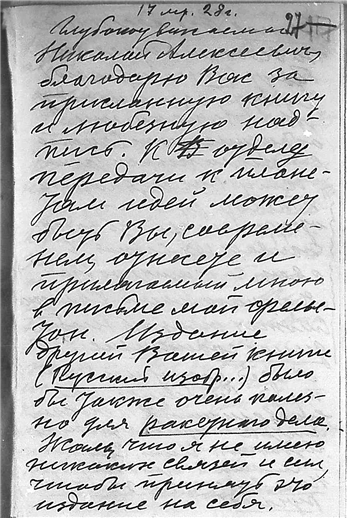 17 мр. 28 г.
27
Глубокоуважаемый
Николай Алексеевич,
благодарю Вас за
присланную книгу
и любезную над-
пись. К отделу
передачи к плане-
там идей может
быть Вы, современ-
нем, отнесете и
прилагаемый мною
в письме мой фелье-
тон. Издание
другой Вашей книги
(Русский изобр...) было
бы также очень полез-
но для ракетного дела.
Жаль, что я не имею
никаких связей и сил,
чтобы принять это
издание на себя.